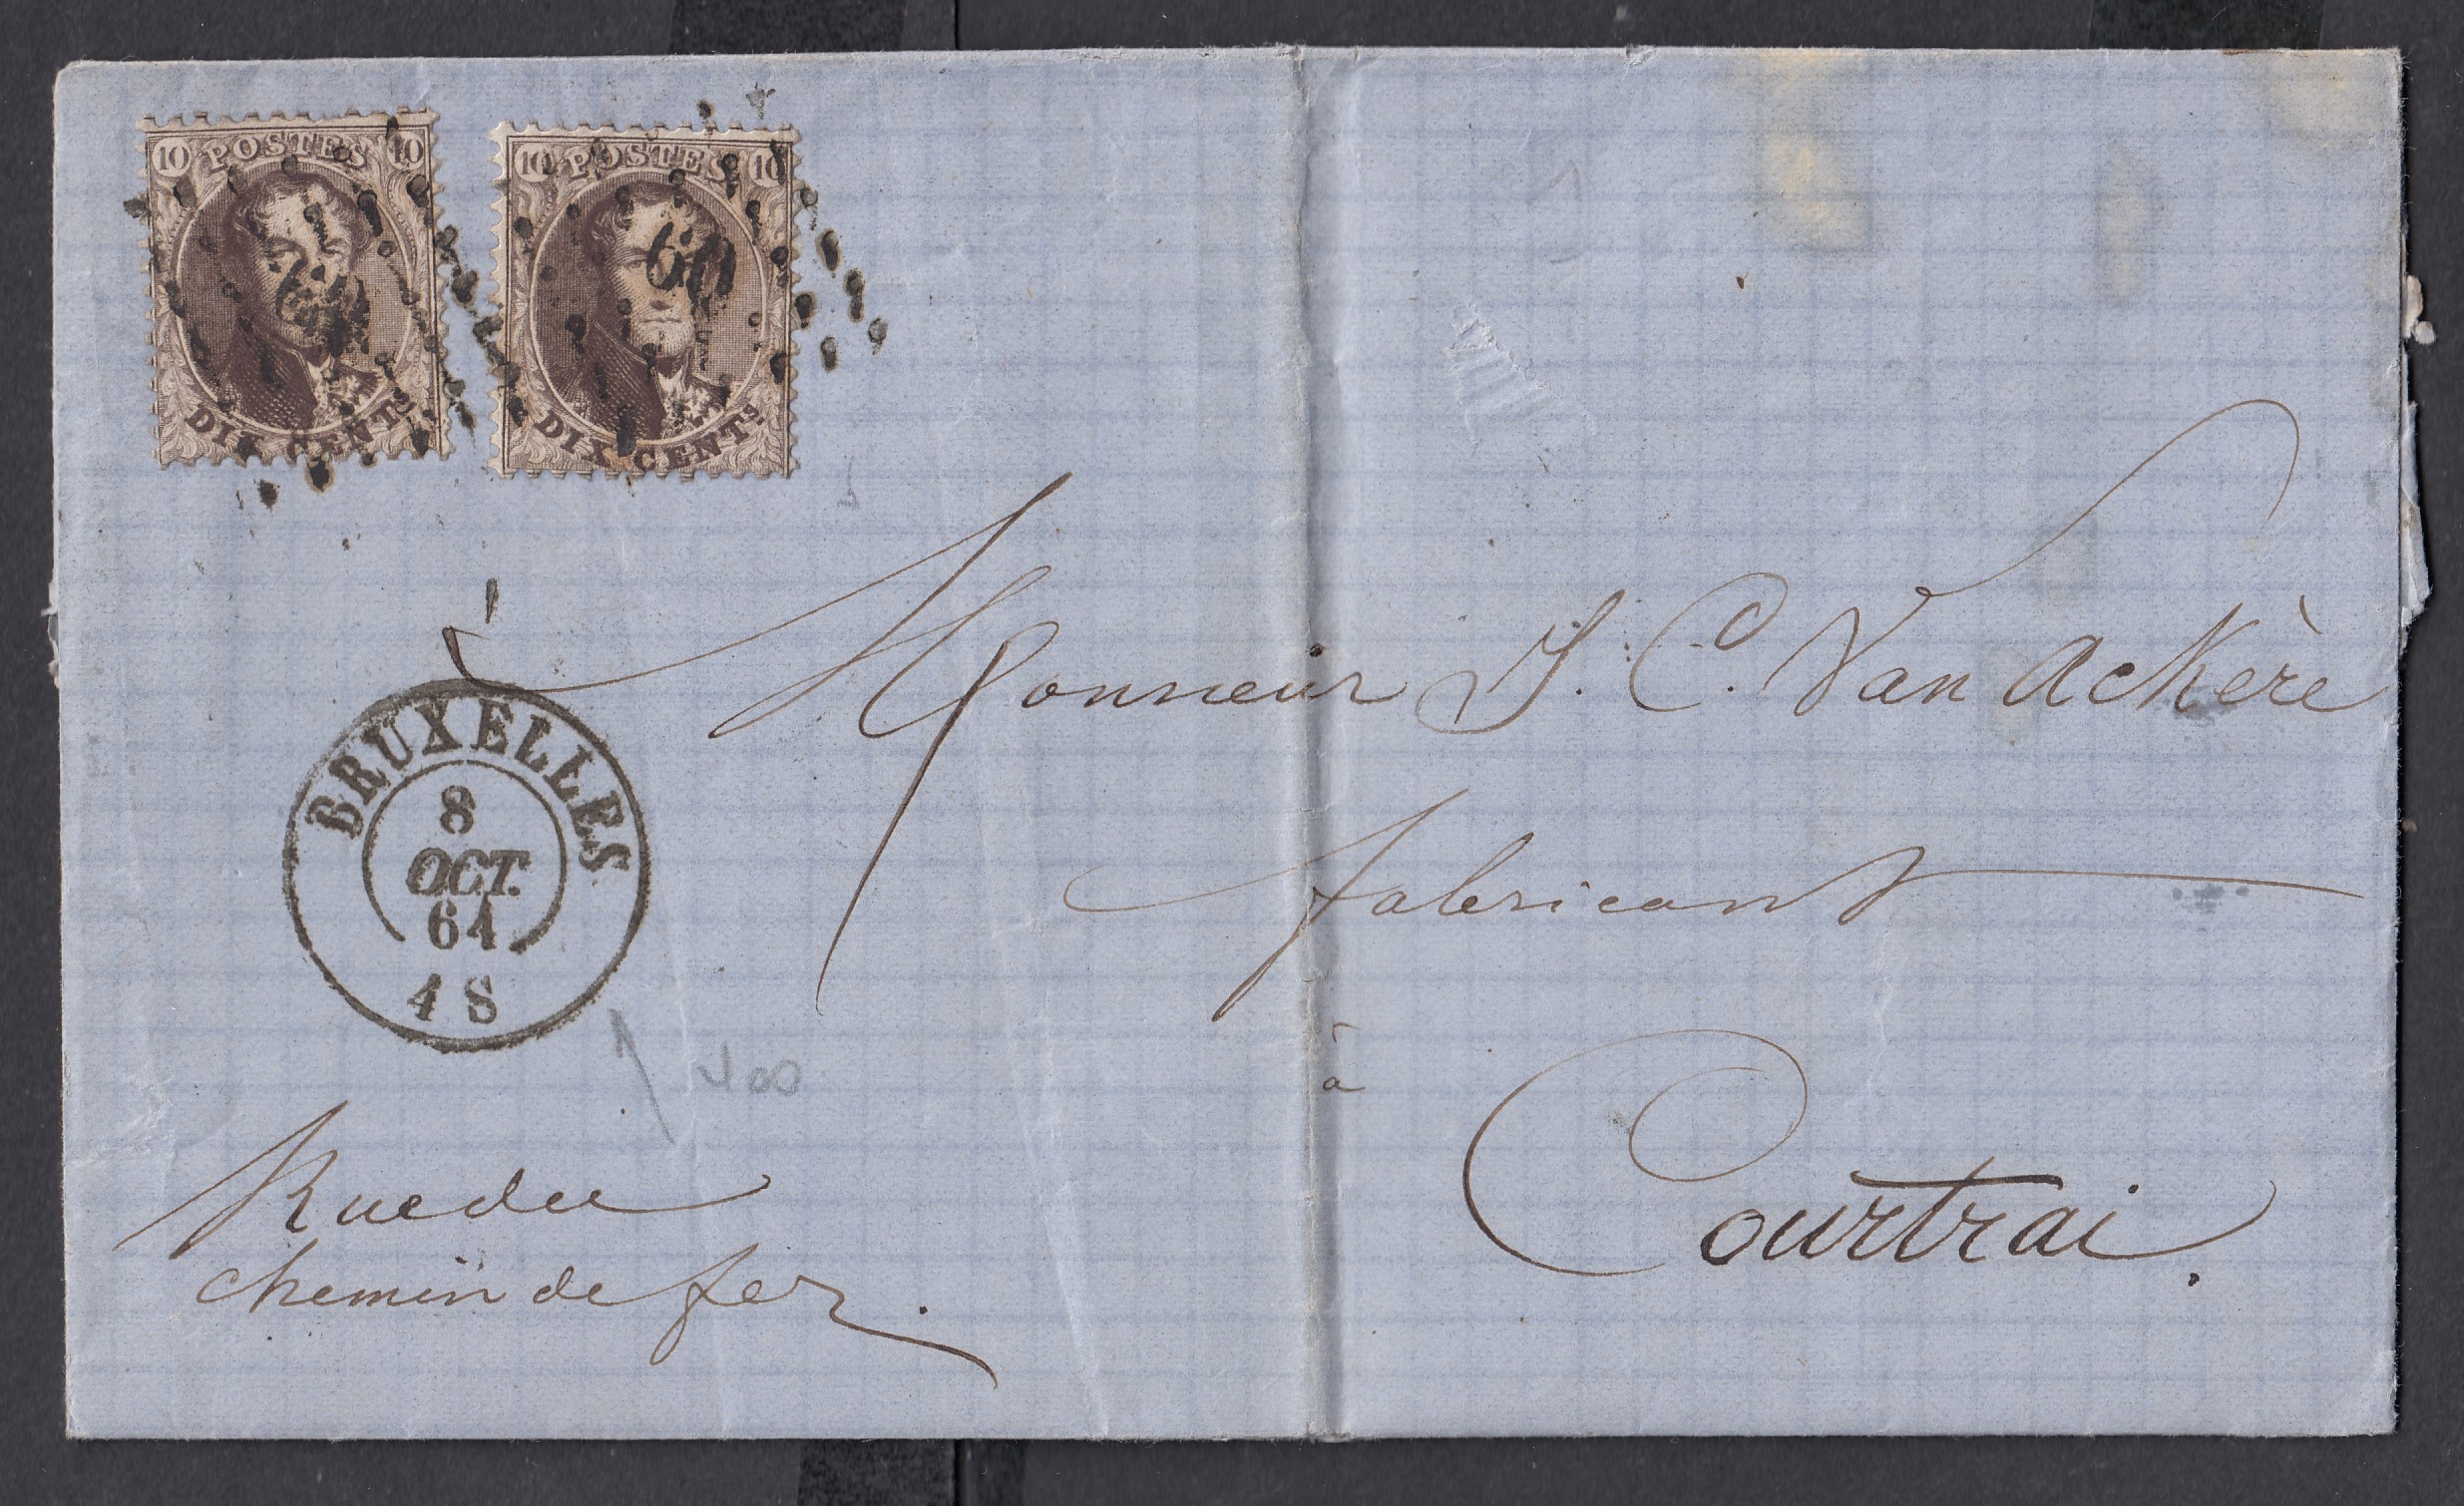 10 POSTES 10
DIX CENTS
10 POSTES 10
DIX CENTS
60
Monsieur J. C. Van Ackère
fabricant
à
Courtrai.
BRUXELLES
8
OCT.
64
1 S
400
Rue du
chemin de fer.